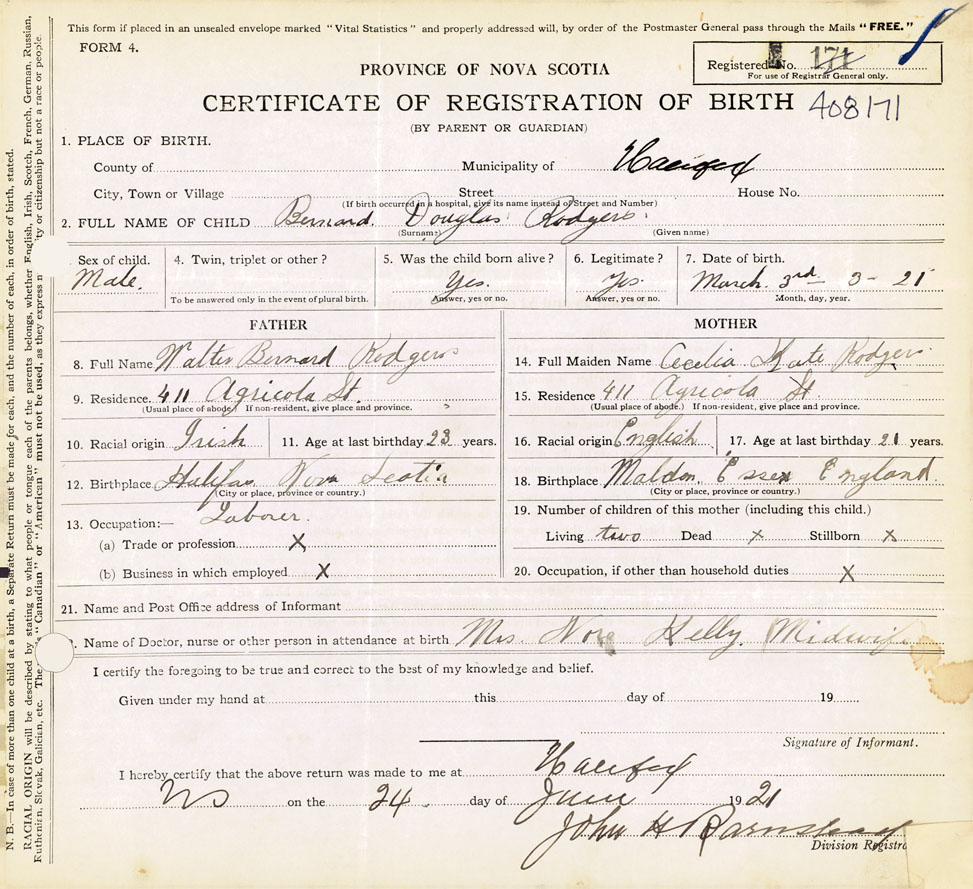 This form if placed in an unsealed envelope marked "Vital Statistics" and properly addressed will, by order of the Postmaster General pass through the Mails "FREE."
FORM 4.
Registered No. 171
For use of Registrar General only.
PROVINCE OF NOVA SCOTIA
CERTIFICATE OF REGISTRATION OF BIRTH 408171
(BY PARENT OR GUARDIAN)
1. PLACE OF BIRTH.
County of Municipality of Halifax
City, Town or Village Street House No.
(If birth occurred in a hospital, give its name instead of Street and Number)
2. FULL NAME OF CHILD Bernard Douglas Rodgers
(Surname) (Given name)
Sex of child. 4. Twin, triplet or other? 5. Was the child born alive? 6. Legitimate? 7. Date of birth.
Male. Yes. Yes. March. 3rd 3 - 21
To be answered only in the event of plural birth. Answer, yes or no. Answer, yes or no. Month, day, year.
FATHER
8. Full Name Walter Bernard Rodgers
9. Residence. 411 Agricola St.
(Usual place of abode) If non-resident, give place and province.
10. Racial origin Irish 11. Age at last birthday 23 years.
12. Birthplace Halifax Nova Scotia
(City or place, province or country.)
13. Occupation:— Laborer.
(a) Trade or profession X
(b) Business in which employed X
MOTHER
14. Full Maiden Name Cecelia Kate Rodgers
15. Residence 411 Agricola St.
(Usual place of abode.) If non-resident, give place and province.
16. Racial origin English 17. Age at last birthday 21 years.
18. Birthplace Maldon, Essex England.
(City or place, province or country.)
19. Number of children of this mother (including this child.)
Living two Dead X Stillborn X
20. Occupation, if other than household duties X
21. Name and Post Office address of Informant
. Name of Doctor, nurse or other person in attendance at birth Mrs. Nora Kelly Midwife
I certify the foregoing to be true and correct to the best of my knowledge and belief.
Given under my hand at this day of 19
Signature of Informant.
I hereby certify that the above return was made to me at Halifax
NS on the 24 day of June 1921
John H Barnstead
Division Registra
N. B.—In case of more than one child at a birth, a Separate Return must be made for each, and the number of each, in order of birth, stated.
RACIAL ORIGIN will be described by stating to what people or tongue each of the parents belongs, whether English, Irish, Scotch, French, German, Russian,
Ruthenian, Slovak, Galician, etc. The "Canadian" or "American" must not be used, as they express ty or citizenship but not a race or people.